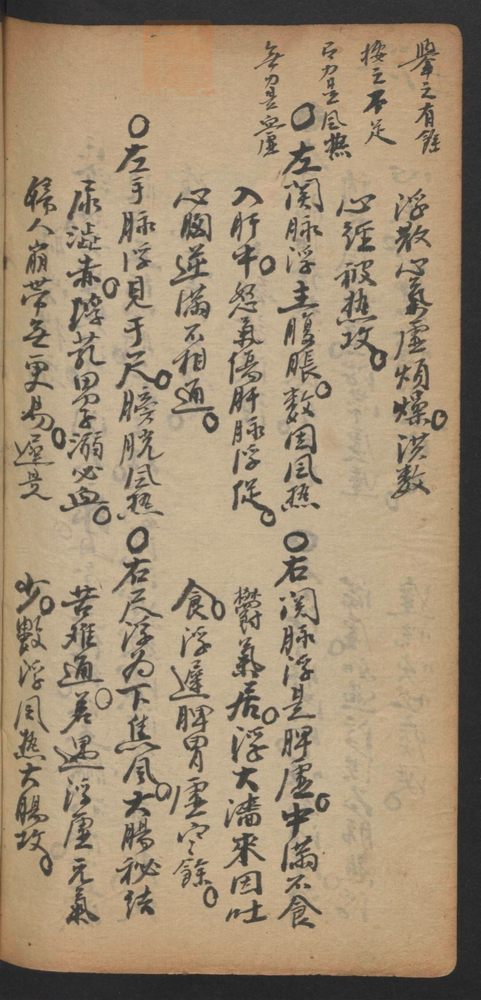 舉之有餘
按之不足
有力是風熱
無力是血虛
浮散心氣虛煩燥。洪數
心經被熱攻。
○左関脉浮主腹脹。數因風熱
入肝中。怒氣傷肝脉浮促。
心胸逆滿不相通。
○左手脉浮見于尺。膀胱風熱
尿澁赤。浮芤男子溺必血。
婦人崩帶無更易。遲是
○右関脉浮是脾虛。中滿不食
鬱氣居。浮大濇來因吐
食。浮遲脾胃虛之餘。
○右尺浮為下焦風。大腸秘結
苦難通。若遇浮虛元氣
少。數浮風熱大腸攻。